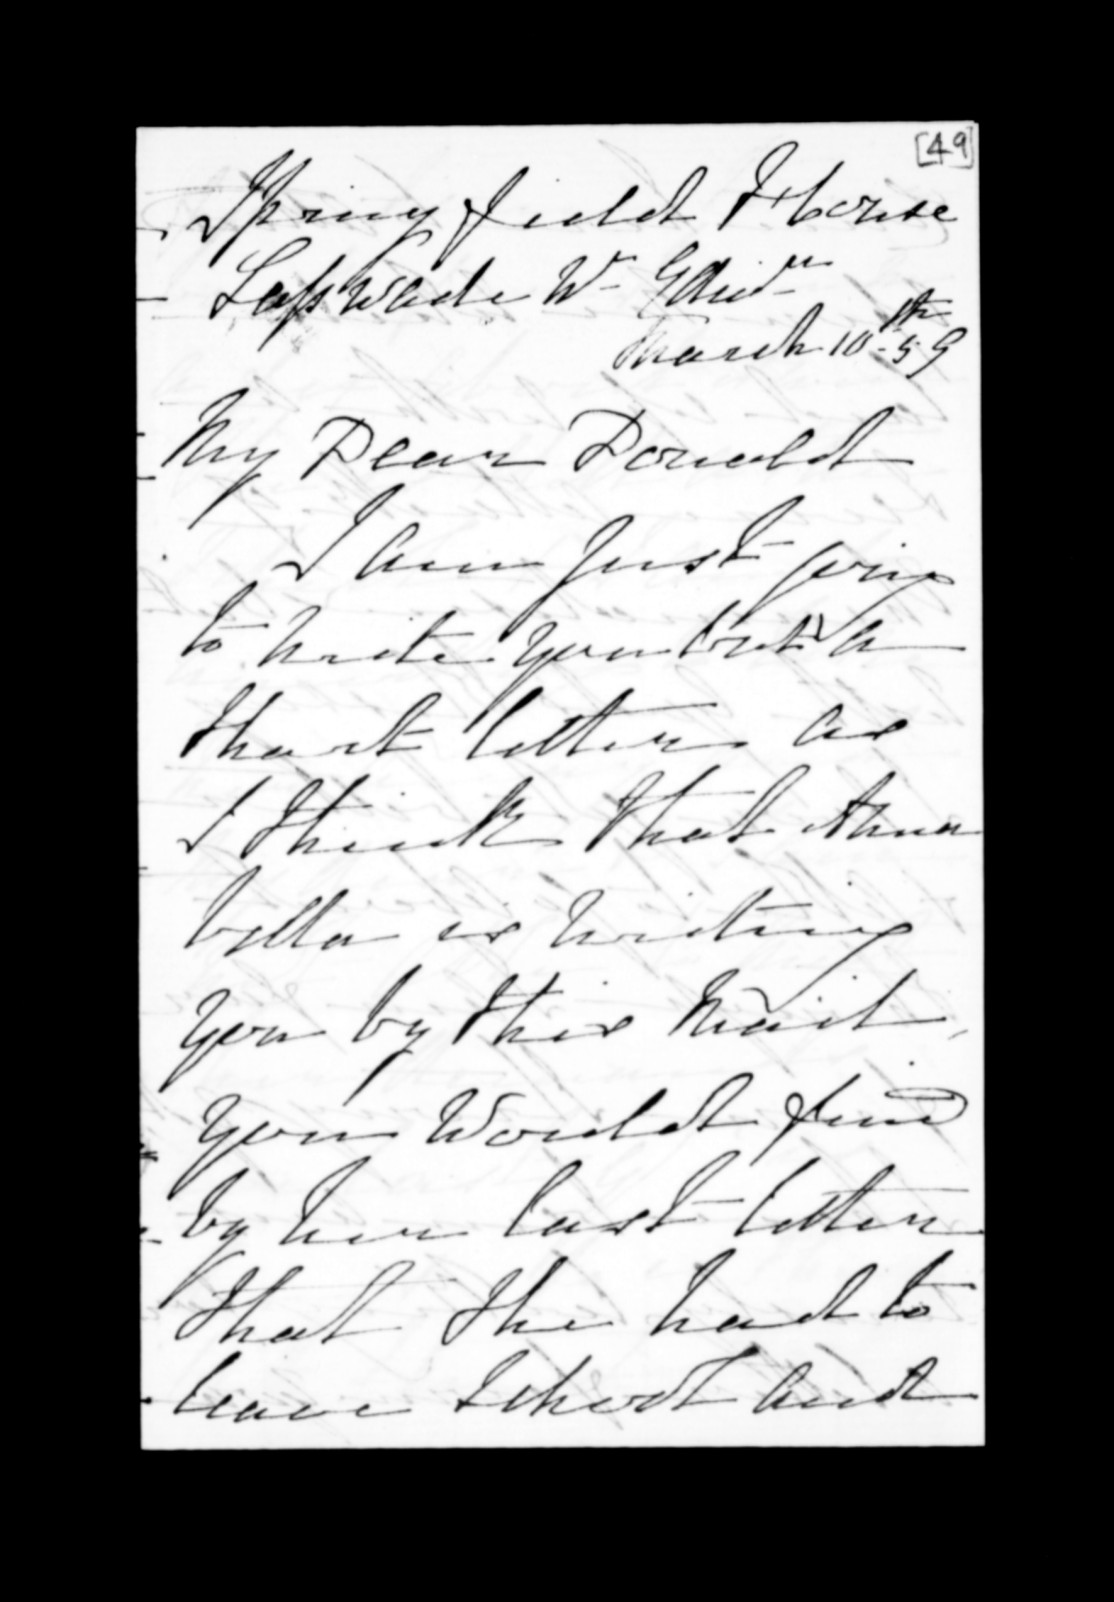 [49]
Springfield House
Lasswade Nr Edinr
March 10th 59
My Dear Donald
I am just going
to write you but a
short letter as
I think that Anna
bella is writing
you by this Mail,
you would find
by her last letter
that she had to
leave School and